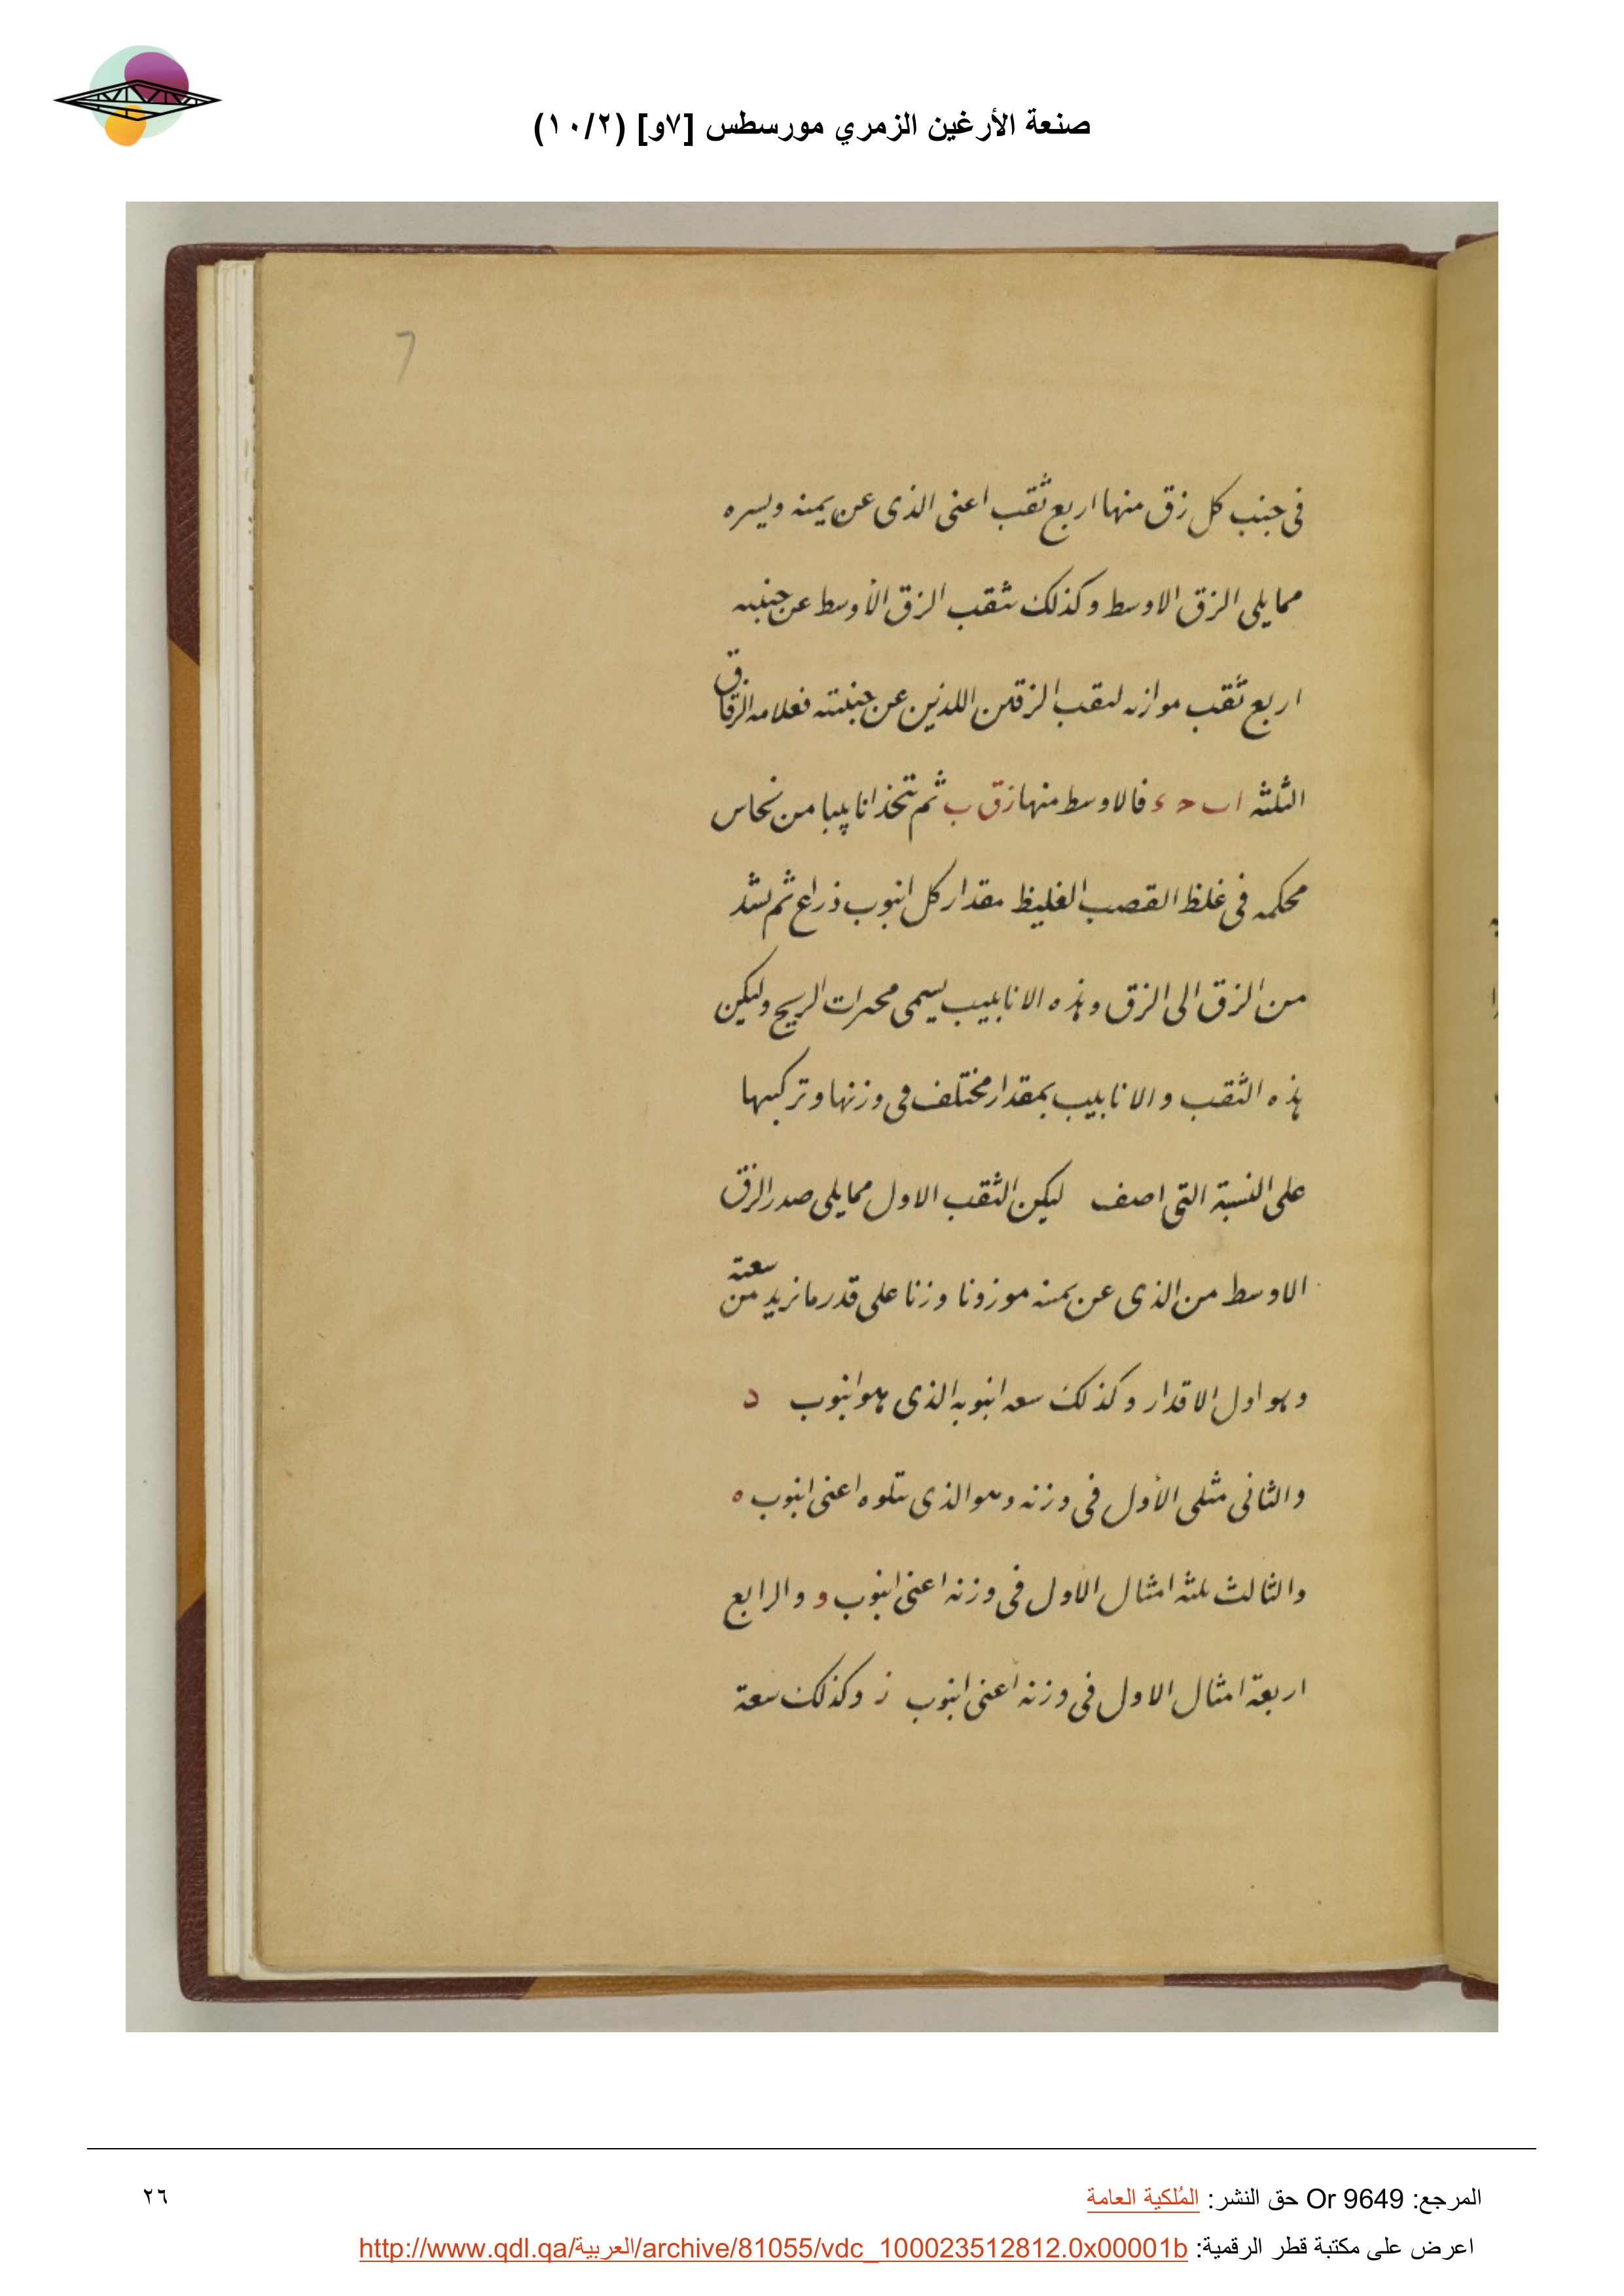 صنعة الأرغين الزمري مورسطس [٧و] (١٠/٢)
7
فى جنب كل زق منها اربع ثقب اعنى الذى عن يمنه ويسره
مما يلى الزق الاوسط وكذلك يثقب الزق الأوسط عن جنبيه
اربع ثقب موازنه لثقب الزقين اللذين عن جنبيته فعلامه الزقاق
الثلثه ا ب ح ء فالاوسط منها زق ب ثم تتخذ انابيبا من نحاس
محكمه فى غلظ القصب الغليظ مقدار كل انبوب ذراع ثم يشد
من الزق الى الزق وهذه الانابيب يسمى الريح وليكن
هذه الثقب والانابيب بمقدار مختلف فى وزنها وتركيبها
على النسبة التى اصف ليكن الثقب الاول مما يلى صدر الزق
الاوسط من الذى عن يمنه موزونا وزنا على قدر ما نريد من سعته
وهو اول الاقدار وكذلك سعه انبوبه الذى هو انبوب د
والثانى مثلى الأول فى وزنه وهو الذى يتلوه اعنى انبوب ه
والثالث ثلثه امثال الأول فى وزنه اعنى انبوب و والرابع
اربعة امثال الاول فى وزنه اعنى انبوب ز وكذلك سعة
المرجع: Or 9649 حق النشر: المُلكية العامة
٢٦
اعرض على مكتبة قطر الرقمية: http://www.qdl.qa/العربية/archive/81055/vdc_100023512812.0x00001b